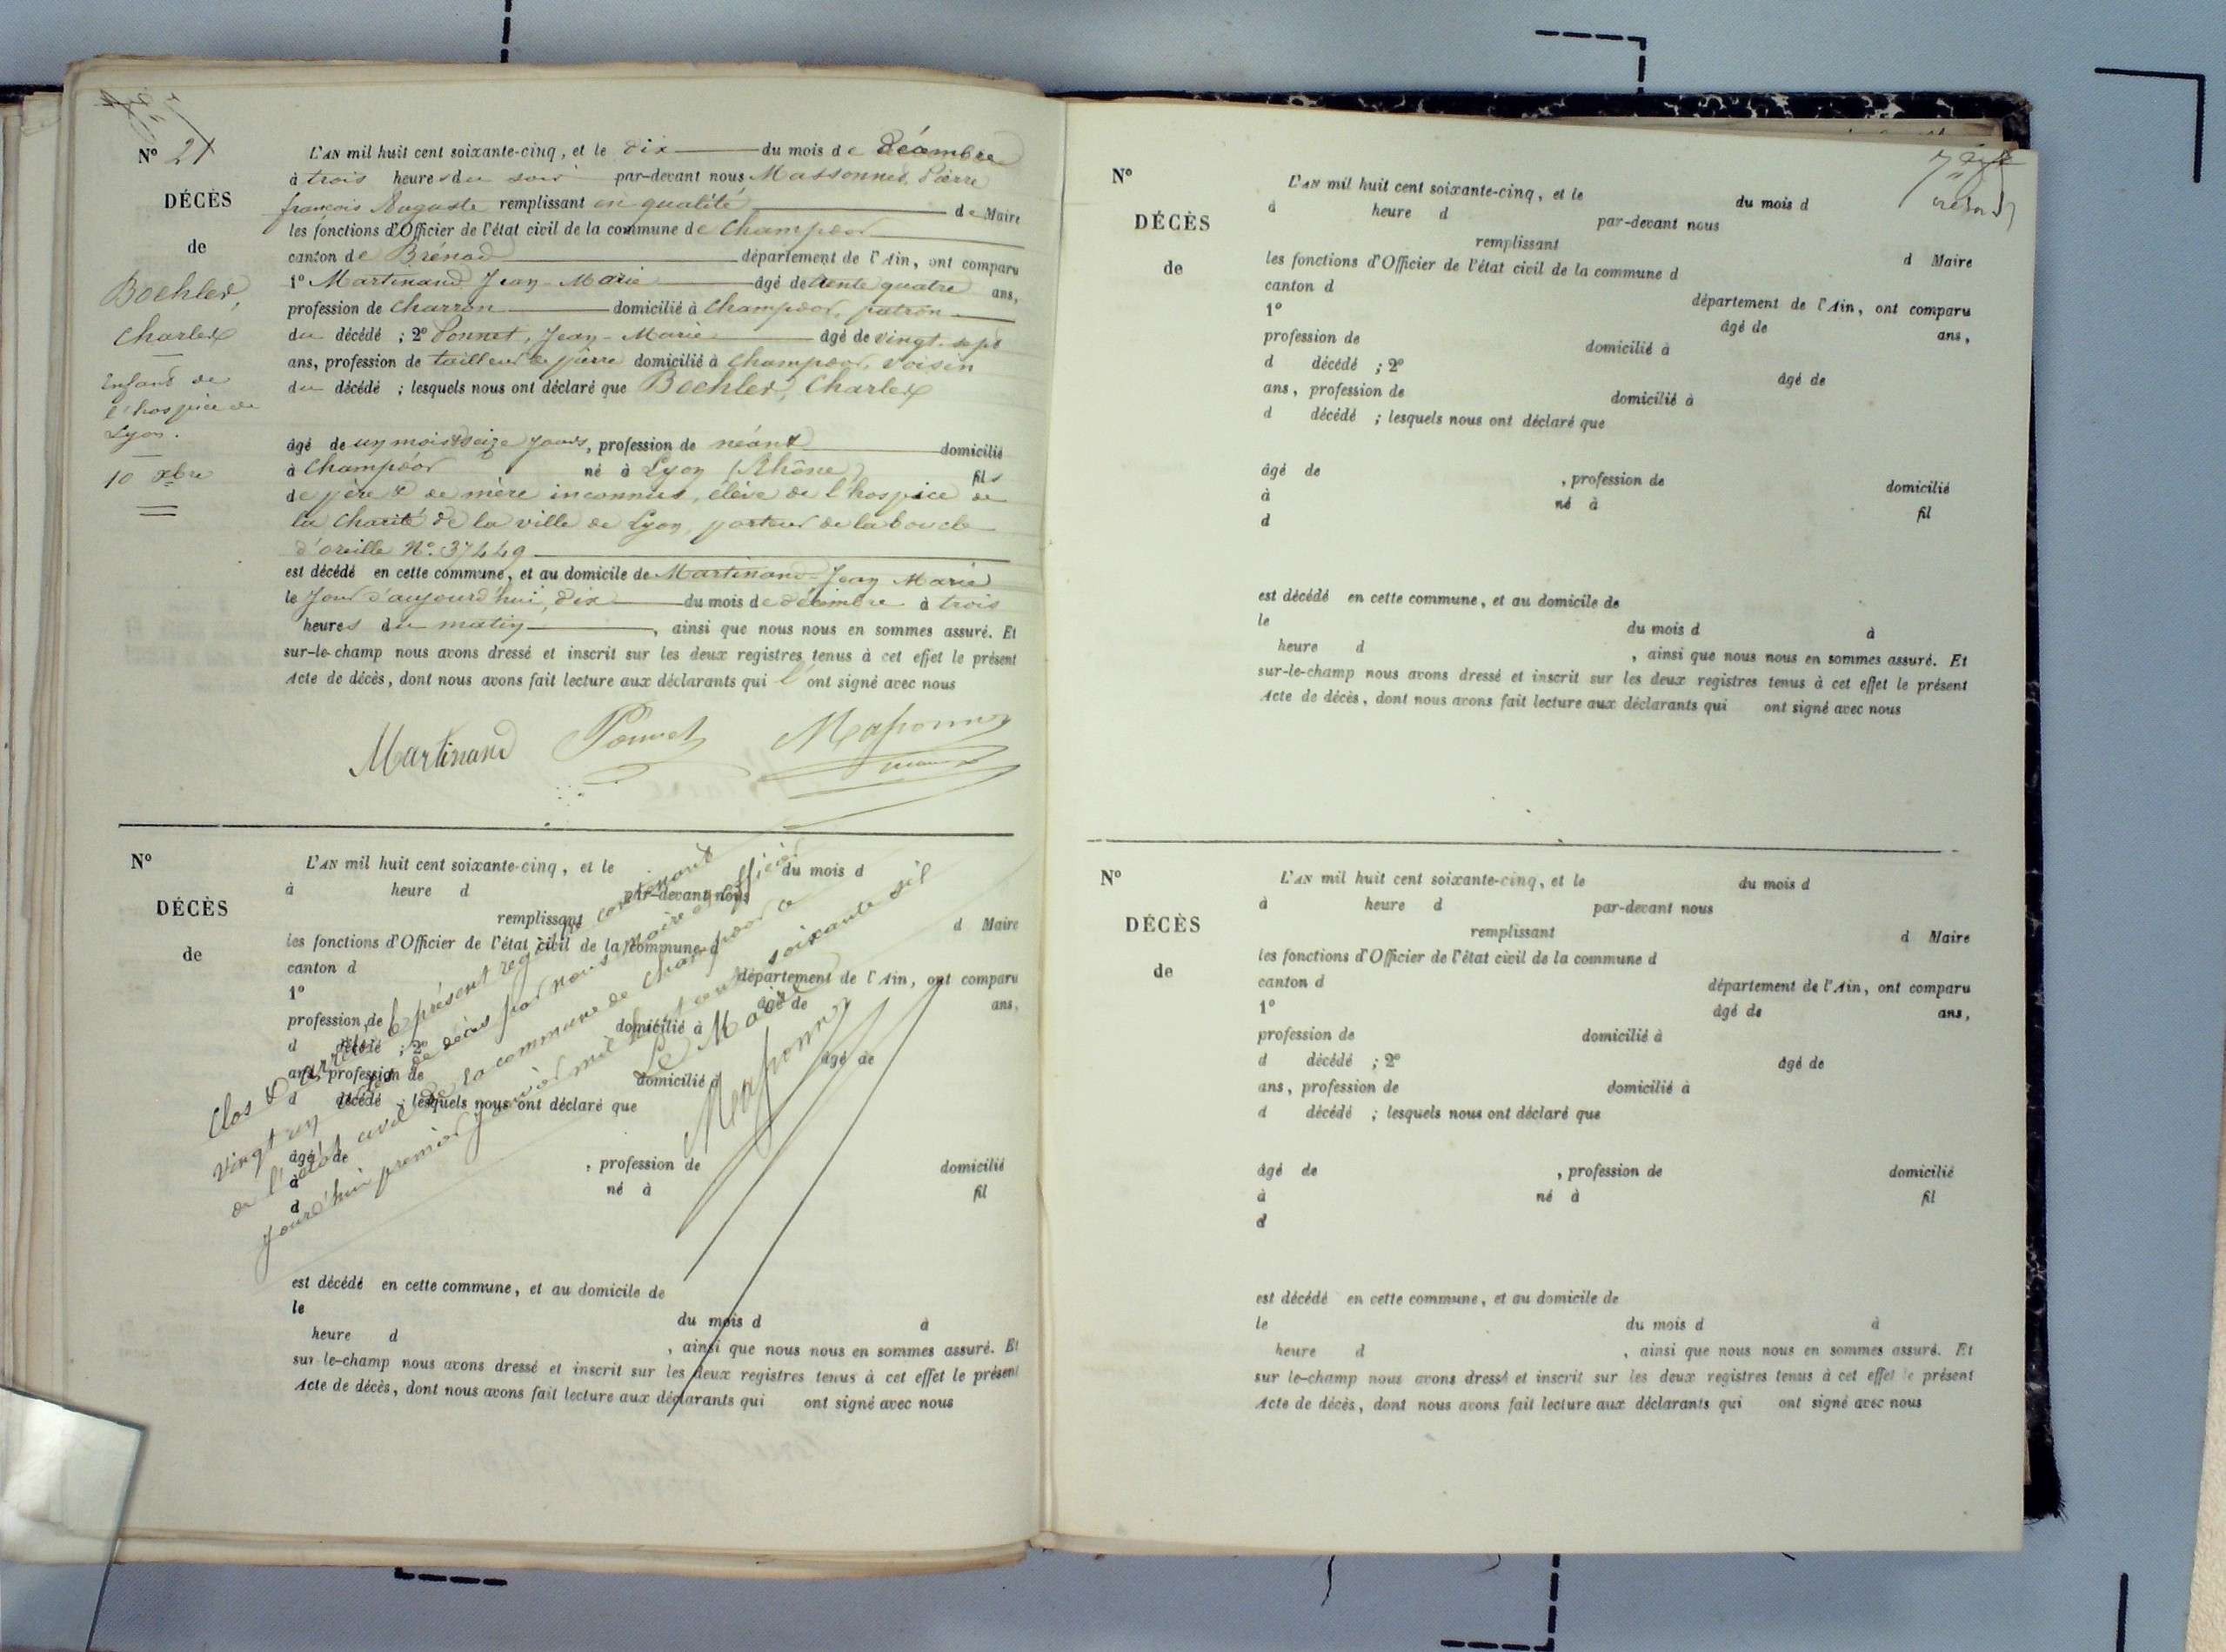 N° 21
DÉCÈS
de
Boehler,
Charles
Enfant de
l'hospice de
Lyon.
10 Xbre
L'AN mil huit cent soixante-cinq, et le dix du mois de décembre
à trois heures du soir par-devant nous Massonnet, Pierre
françois Auguste remplissant en qualité de Maire
les fonctions d'Officier de l'état civil de la commune de Champdor
canton de Brénod département de l'Ain, ont comparu
1° Martinand Jean-Marie âgé de trente quatre ans,
profession de Charron domicilié à Champdor, patron
du décédé ; 2° Ponnet, Jean-Marie âgé de vingt-sept
ans, profession de tailleur de pierre domicilié à Champdor, voisin
du décédé ; lesquels nous ont déclaré que Boehler, Charles
âgé de un mois seize jours, profession de néant domicilié
à Champdor né à Lyon (Rhône) fils
de père & de mère inconnus, élève de l'hospice de
la Charité de la ville de Lyon, porteur de la boucle
d'oreille N° 37449
est décédé en cette commune, et au domicile de Martinand Jean Marie
le jour d'aujourd'hui, dix du mois de décembre à trois
heures du matin, ainsi que nous nous en sommes assuré. Et
sur-le-champ nous avons dressé et inscrit sur les deux registres tenus à cet effet le présent
Acte de décès, dont nous avons fait lecture aux déclarants qui l'ont signé avec nous
Martinand Ponnet Massonnet
N°
DÉCÈS
de
L'AN mil huit cent soixante-cinq, et le du mois d
à heure d par-devant nous
remplissant d Maire
les fonctions d'Officier de l'état civil de la commune d
canton d département de l'Ain, ont comparu
1° âgé de ans,
profession de domicilié à
d décédé ; 2° âgé de
ans, profession de domicilié à
d décédé ; lesquels nous ont déclaré que
âgé de , profession de domicilié
à né à fil
d
est décédé en cette commune, et au domicile de
le du mois d à
heure d , ainsi que nous nous en sommes assuré. Et
sur le-champ nous avons dressé et inscrit sur les deux registres tenus à cet effet le présent
Acte de décès, dont nous avons fait lecture aux déclarants qui ont signé avec nous
Clos & arrêté le présent registre contenant
vingt un actes de décès par nous maire et officier
de l'état civil de la commune de Champdor a
jourd'hui premier janvier mil huit cent soixante six
Le Maire
Massonnet
N°
DÉCÈS
de
L'AN mil huit cent soixante-cinq, et le du mois d
à heure d par-devant nous
remplissant d Maire
les fonctions d'Officier de l'état civil de la commune d
canton d département de l'Ain, ont comparu
1° âgé de ans,
profession de domicilié à
d décédé ; 2° âgé de
ans, profession de domicilié à
d décédé ; lesquels nous ont déclaré que
âgé de , profession de domicilié
à né à fil
d
est décédé en cette commune, et au domicile de
le du mois d à
heure d , ainsi que nous nous en sommes assuré. Et
sur-le-champ nous avons dressé et inscrit sur les deux registres tenus à cet effet le présent
Acte de décès, dont nous avons fait lecture aux déclarants qui ont signé avec nous
N°
DÉCÈS
de
L'AN mil huit cent soixante-cinq, et le du mois d
à heure d par-devant nous
remplissant d Maire
les fonctions d'Officier de l'état civil de la commune d
canton d département de l'Ain, ont comparu
1° âgé de ans,
profession de domicilié à
d décédé ; 2° âgé de
ans, profession de domicilié à
d décédé ; lesquels nous ont déclaré que
âgé de , profession de domicilié
à né à fil
d
est décédé en cette commune, et au domicile de
le du mois d à
heure d , ainsi que nous nous en sommes assuré. Et
sur le-champ nous avons dressé et inscrit sur les deux registres tenus à cet effet le présent
Acte de décès, dont nous avons fait lecture aux déclarants qui ont signé avec nous